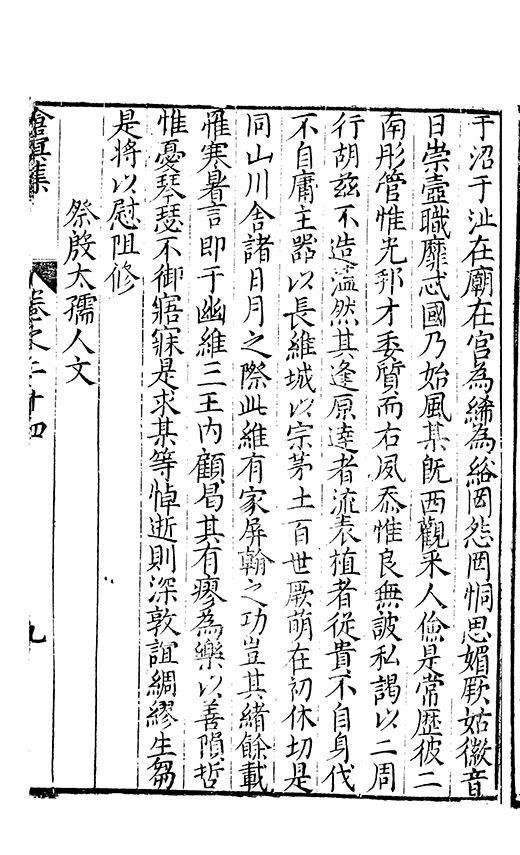 于沼于沚在廟在宮為絺為綌罔怨罔恫思媚厥姑徽音
日崇壼職靡忒國乃始風某旣西觀采人儉是常歷彼二
南彤管惟光邦才委質而右夙忝惟良無詖私謁以二周
行胡玆不造溘然其逢原達者流表植者從貴不自身代
不自庸主器以長維城以宗茅土百世厥萌在初休切是
同山川舍諸日月之際此維有家屏翰之功豈其緒餘載
罹寒暑言即于幽維三王内顧曷其有瘳為樂以善隕哲
惟憂琴瑟不御寤寐是求某等悼逝則深敦誼綢繆生芻
是將以慰阻修
祭殷太孺人文
滄溟集
卷之二十四
九